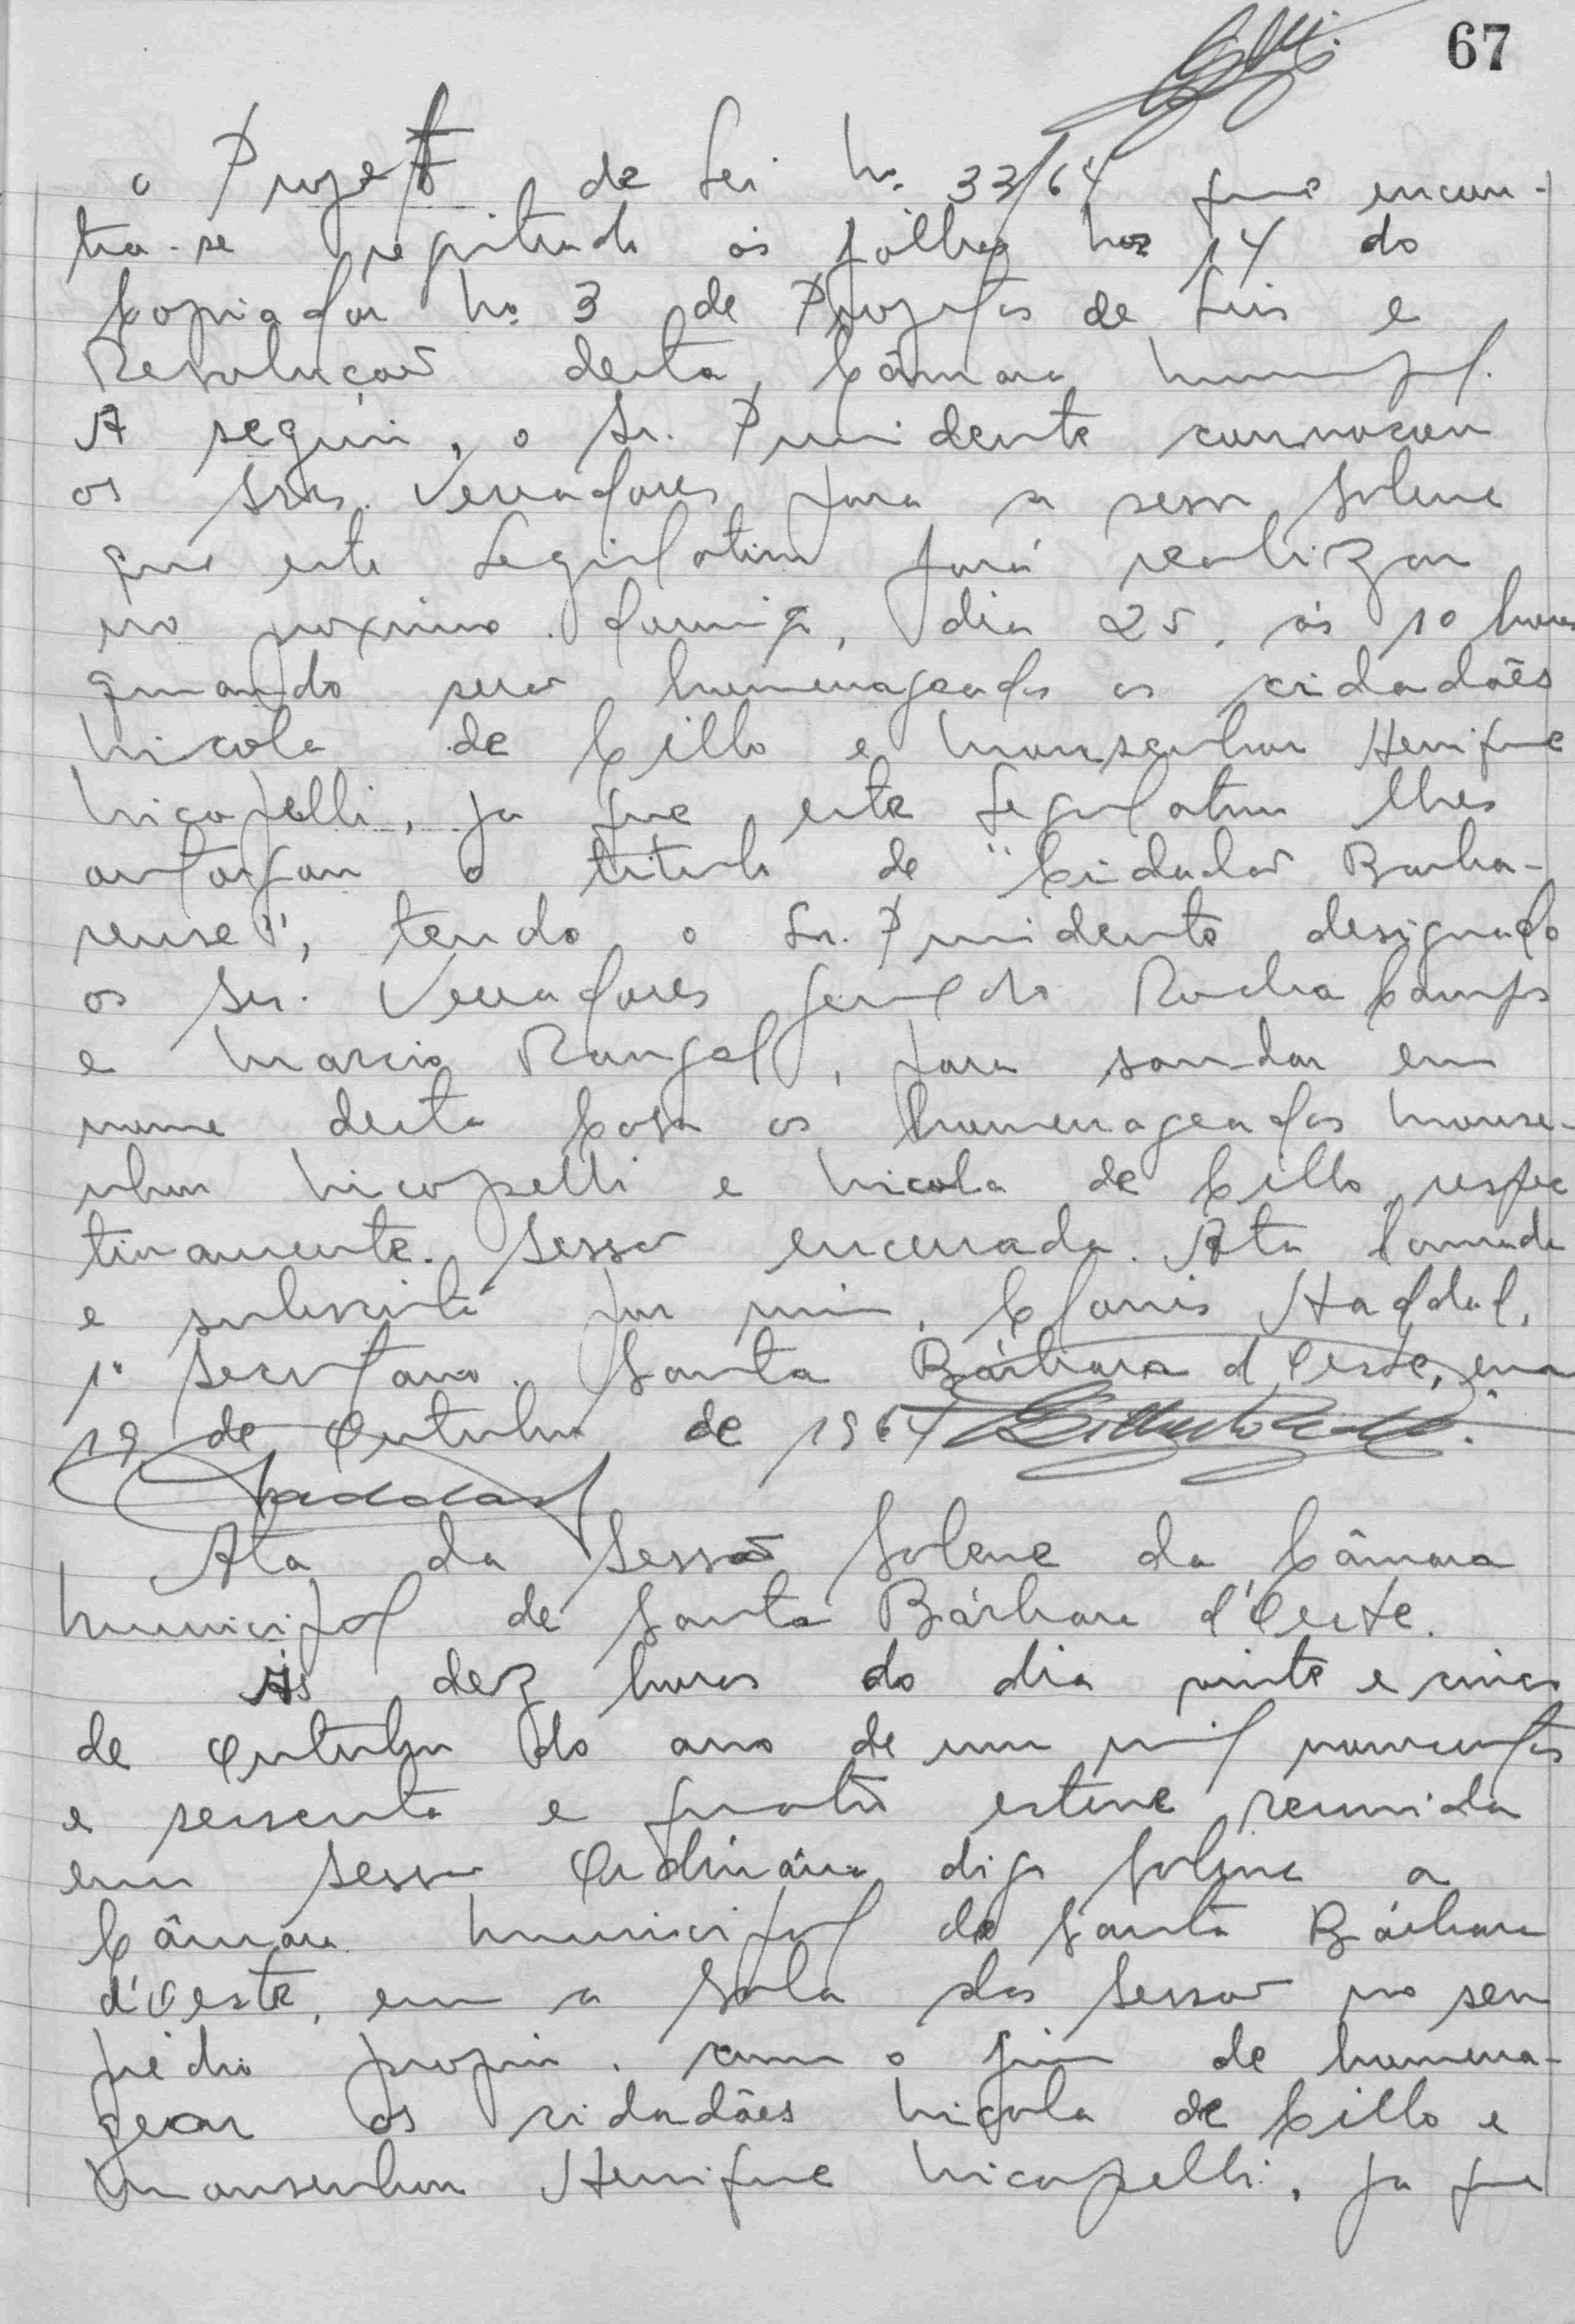 67
o Projeto de Lei no. 33/64 que encon-
tra-se registrado às fôlhas nos 14 do
Copiador no. 3 de Projetos de Leis e
Resolução desta Câmara Municipal.
A seguir, o Sr. Presidente convocou
os Srs. Vereadores para a sessão solene
que este Legislativo fará realizar
no proximo domingo, dia 25, às 10 horas
quando serão homenageados os cidadães
Nicola de Cillo e Monsenhor Henrique
Nicopelli, ja que este Legislativo lhes
outorgou o titulo de "Cidadão Barba-
rense", tendo o Sr. Presidente designado
os Srs. Vereadores Geraldo Rocha Campos
e Marcio Rangel, para saudar em
nome desta Casa os homenageados Monse-
nhor Nicopelli e Nicola de Cillo respec
tivamente. Sessão encerrada. Ata lavrada
e subscrita por mim, Clovis Haddad,
1º Secretario. Santa Bárbara d'Oeste, em
19 de Outubro de 1964
Haddad
Ata da Sessão Solene da Câmara
Municipal de Santa Bárbara d'Oeste.
Às dez horas do dia vinte e cinco
de Outubro do ano de um mil novecentos
e sessenta e quatro esteve reunida
em sessão Ordinária digo Solene a
Câmara Municipal de Santa Bárbara
d'Oeste, em a Sala das Sessão no seu
prédio proprio, com o fim de homena-
gear os cidadães Nicola de Cillo e
Monsenhor Henrique Nicopelli, ja que